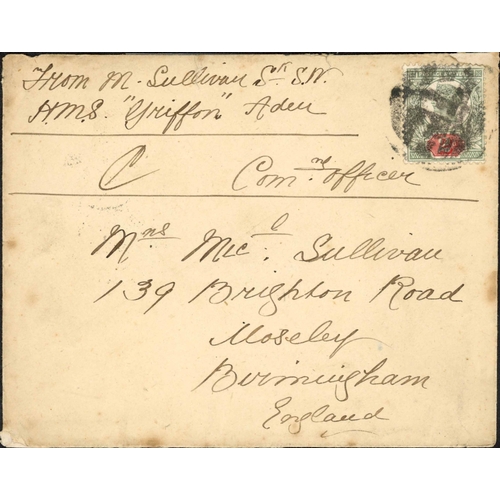 From M. Sullivan Stk S.W.
H.M.S. "Griffon" Aden
C Comng officer
Mrs Micl Sullivan
139 Brighton Road
Moseley
Birmingham
England